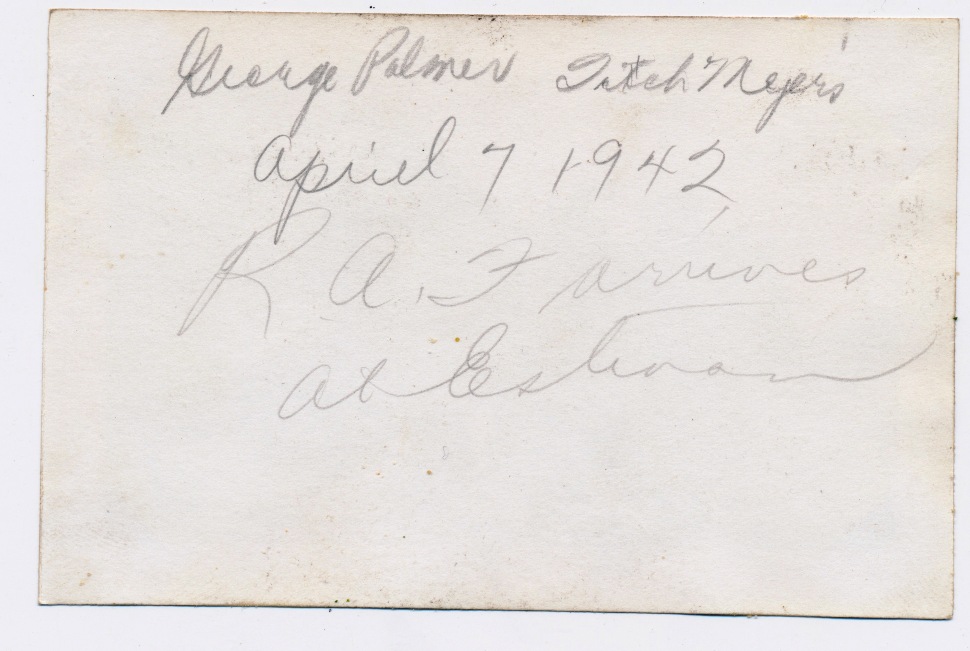 George Palmer Fitch Meyers
April 7 1942
R.A.F arrives
at Estevan